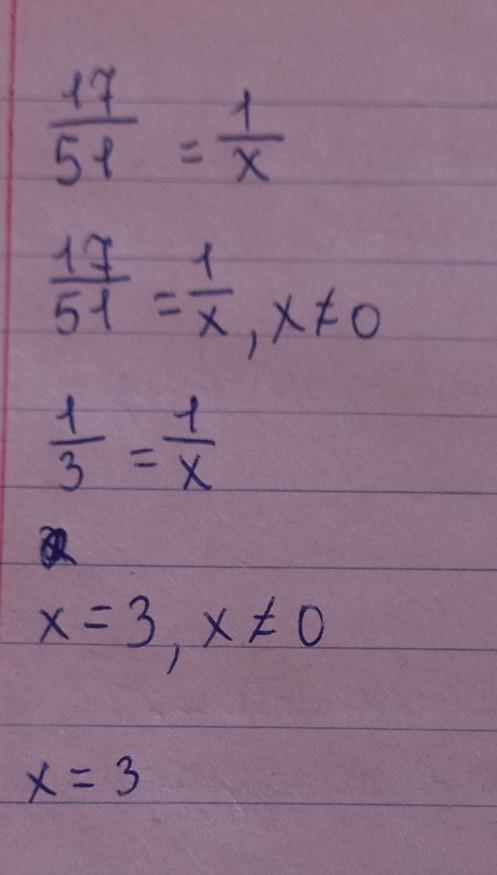 17/51 = 1/x
17/51 = 1/x, x≠0
1/3 = 1/x
x=3, x≠0
x=3